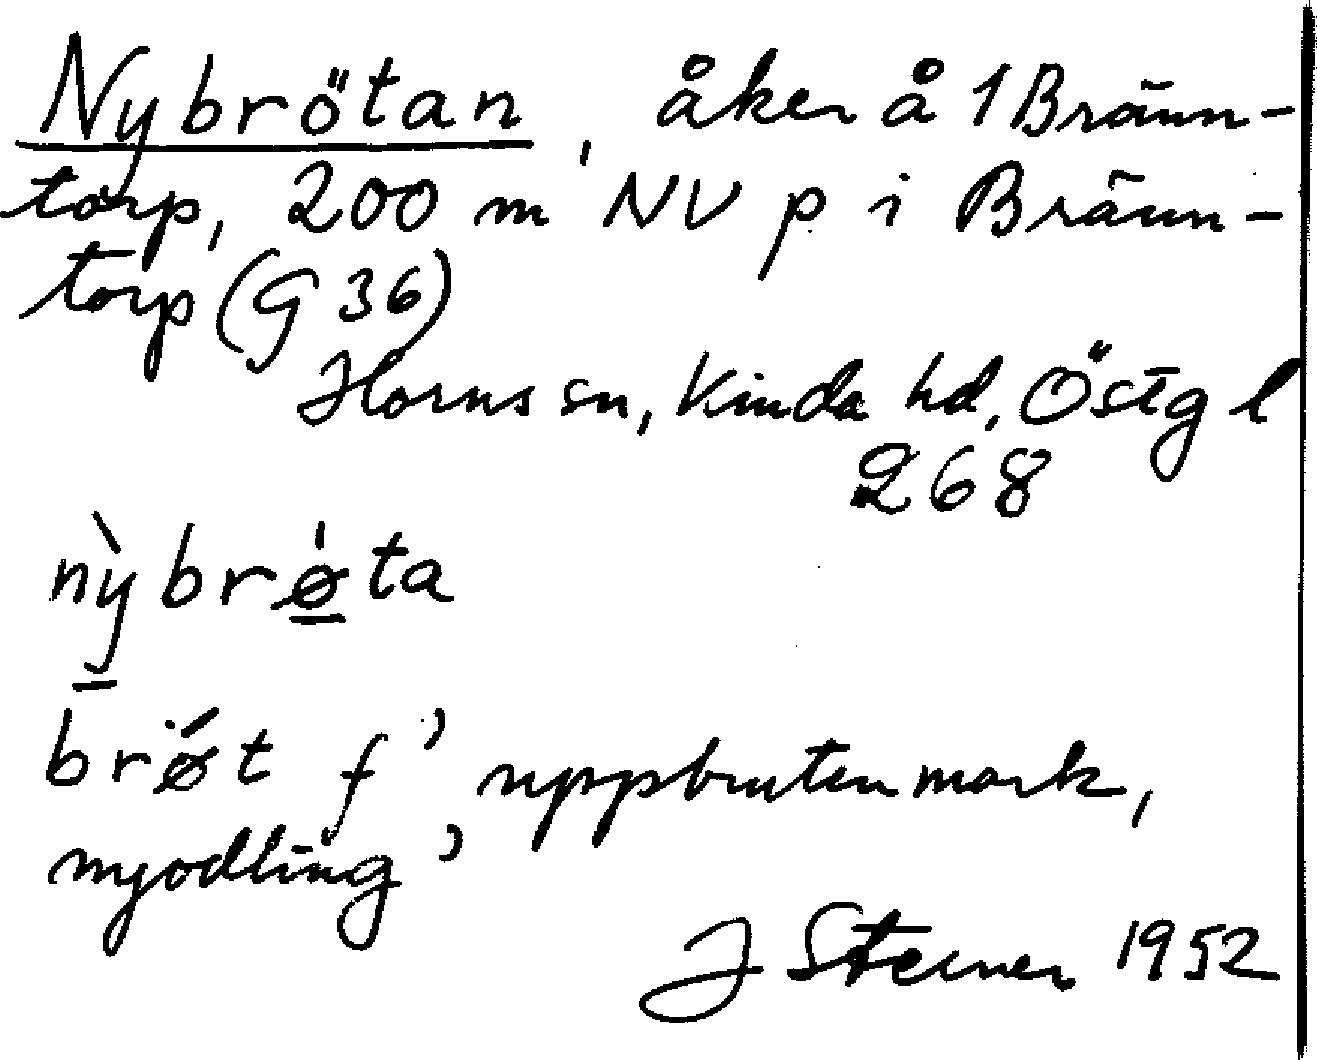 Nybrötan, åker å 1 Bräun-
torp, 200 m NV p i Bräun-
torp (G 36)
Horns sn, Kinda hd, Östg l
268
nỳbrø̀ta
brø̋t f ’uppbruten mark,
nyodling’
J Sterner 1952